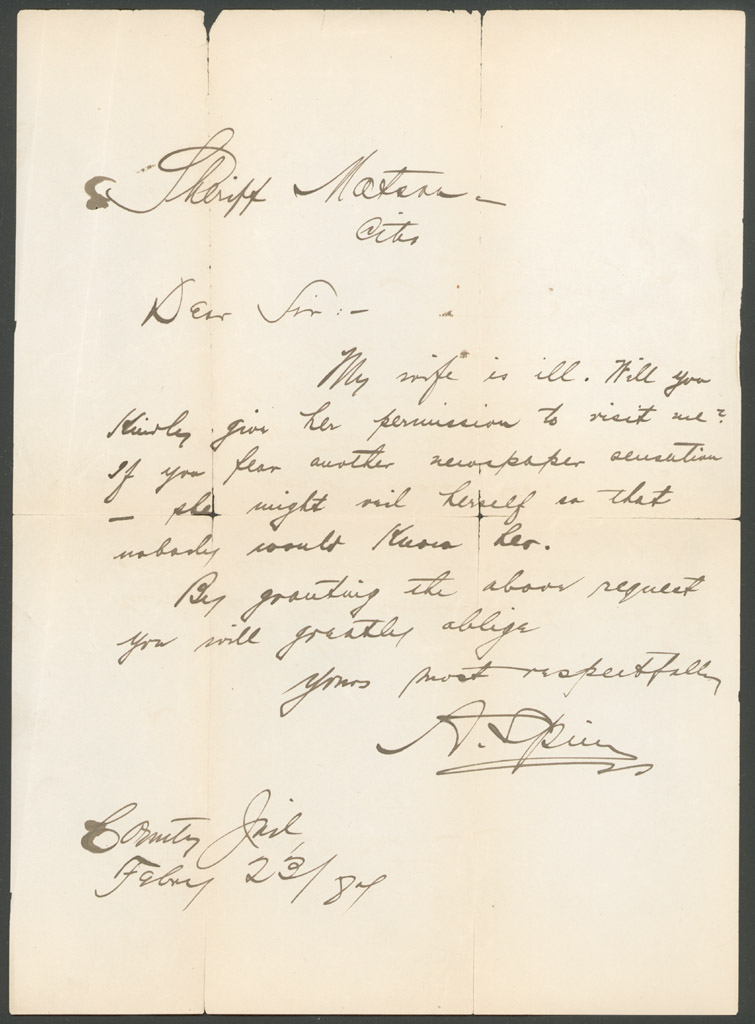 Sheriff Matson -
City
Dear Sir:-
My wife is ill. Will you
Kindly give her permission to visit me?
If you fear another newspaper sensation
— she might veil herself so that
nobody would Know her.
By granting the above request
you will greatly oblige
yours most respectfully
A. Spies
County Jail
Febry 23/87